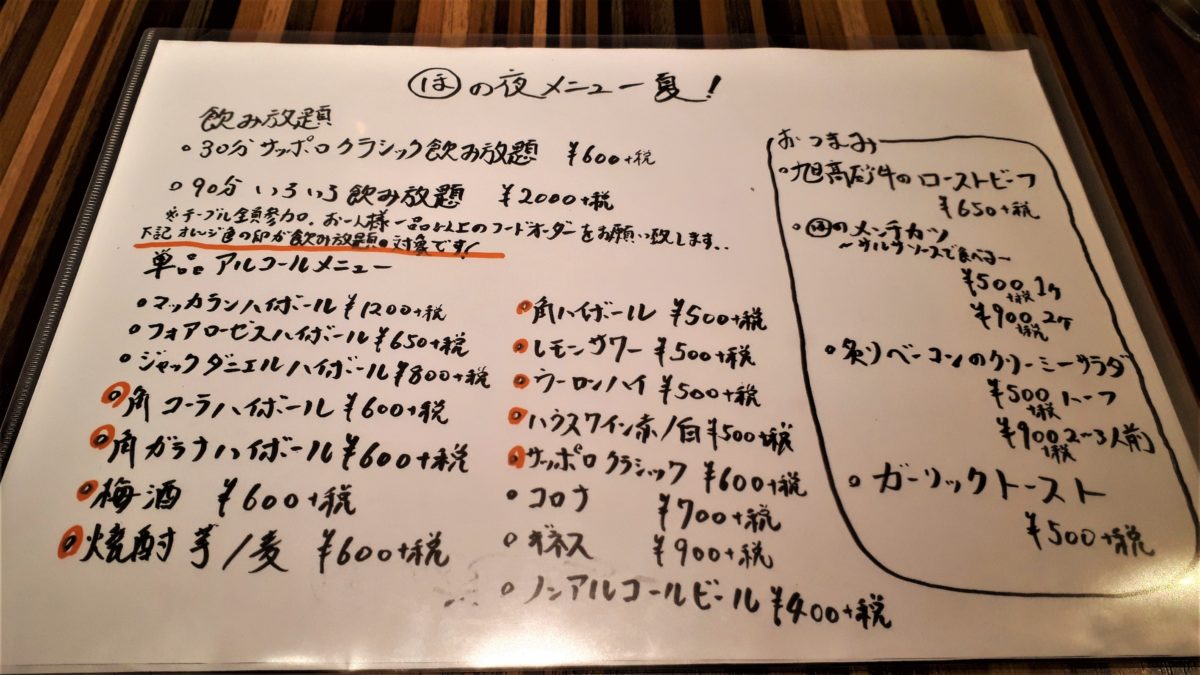 ほの夜メニュー夏!
飲み放題
30分サッポロクラシック飲み放題 ¥600+税
90分 いろいろ飲み放題 ¥2000+税
※テーブル全員参加。お一人様一品以上のフードオーダーをお願い致します..
下記オレンジ色の印が飲み放題の対象です!
単品アルコールメニュー
マッカランハイボール ¥1200+税
フォアローゼスハイボール ¥650+税
ジャックダニエルハイボール ¥800+税
角コーラハイボール ¥600+税
角ガラナハイボール ¥600+税
梅酒 ¥600+税
焼酎 芋/麦 ¥600+税
角ハイボール ¥500+税
レモンサワー ¥500+税
ウーロンハイ ¥500+税
ハウスワイン赤/白 ¥500+税
サッポロクラシック ¥600+税
コロナ ¥700+税
ギネス ¥900+税
ノンアルコールビール ¥400+税
おつまみ
旭高砂牛のローストビーフ
¥650+税
ほのメンチカツ
~サルサソースで食べる~
¥500+税 1ケ
¥900+税 2ケ
炙りベーコンのクリーミーサラダ
¥500+税 ハーフ
¥900+税 2~3人前
ガーリックトースト
¥500+税